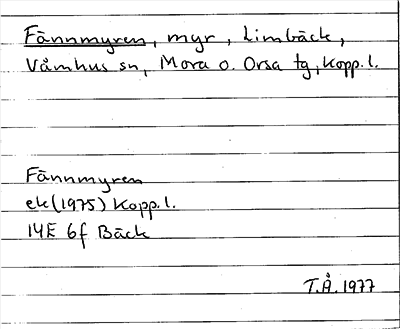 Fännmyren, myr, Limbäck,
Våmhus sn, Mora o. Orsa tg, Kopp. l.
Fännmyren
ek (1975) Kopp. l.
14E 6f Bäck
T.Å. 1977